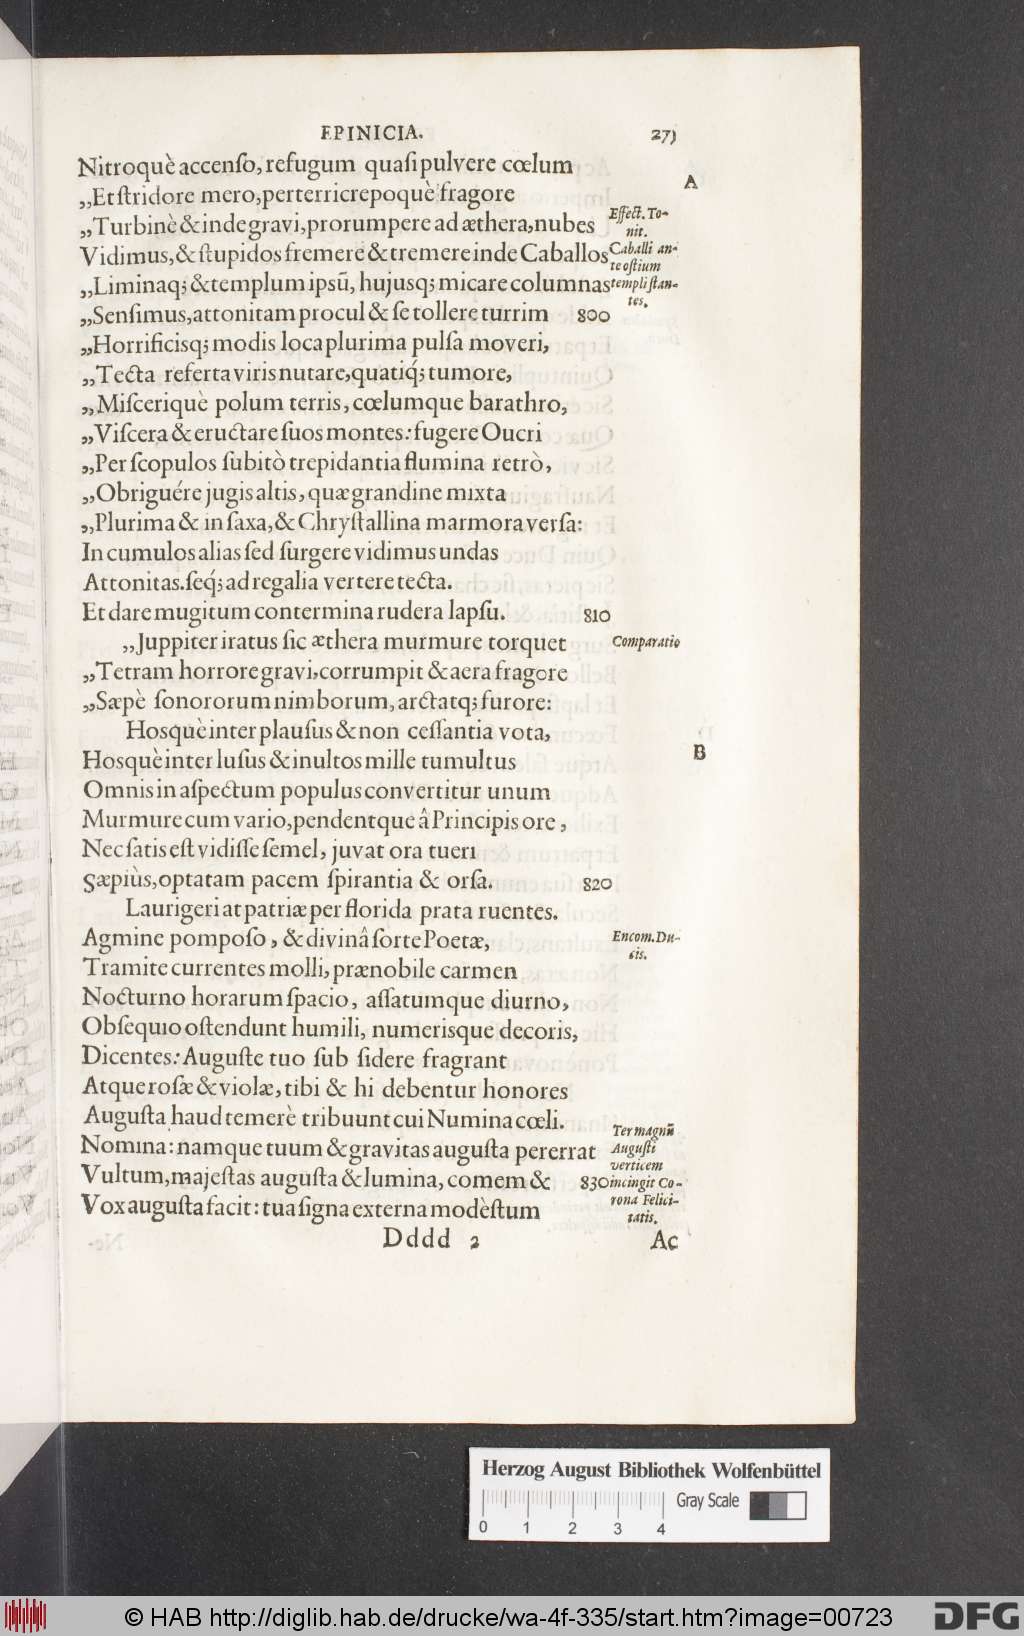 EPINICIA. 273
Nitroquè accenſo, refugum quaſi pulvere cœlum
A
„Et ſtridore mero, perterricrepoquè fragore
„Turbinè & inde gravi, prorumpere ad æthera, nubes
Effect. To-
nit.
Vidimus, & ſtupidos fremere & tremere inde Caballos
Caballi an-
te oſtium
„Liminaq; & templum ipsũ, hujusq; micare columnas
templi ſtan-
tes.
„Senſimus, attonitam procul & ſe tollere turrim 800
„Horrificisq; modis loca plurima pulſa moveri,
„Tecta referta viris nutare, quatiq́; tumore,
„Miſceriquè polum terris, cœlumque barathro,
„Viſcera & eructare ſuos montes: fugere Oucri
„Per ſcopulos ſubitò trepidantia flumina retrò,
„Obriguére jugis altis, quæ grandine mixta
„Plurima & in ſaxa, & Chryſtallina marmora verſa:
In cumulos alias ſed ſurgere vidimus undas
Attonitas. ſeq́; ad regalia vertere tecta.
Et dare mugitum contermina rudera lapſu. 810
„Juppiter iratus ſic æthera murmure torquet
Comparatio
„Tetram horrore gravi, corrumpit & aera fragore
„Sæpè ſonororum nimborum, arctatq; furore:
Hosquè inter plauſus & non ceſſantia vota,
B
Hosquè inter luſus & inultos mille tumultus
Omnis in aſpectum populus convertitur unum
Murmure cum vario, pendentque â Principis ore,
Nec ſatis eſt vidiſſe ſemel, juvat ora tueri
Sæpiùs, optatam pacem ſpirantia & orſa. 820
Laurigeri at patriæ per florida prata ruentes.
Agmine pompoſo, & divinâ ſorte Poetæ,
Encom. Du-
cis.
Tramite currentes molli, prænobile carmen
Nocturno horarum ſpacio, aſſatumque diurno,
Obſequio oſtendunt humili, numerisque decoris,
Dicentes: Auguſte tuo ſub ſidere fragrant
Atque roſæ & violæ, tibi & hi debentur honores
Auguſta haud temerè tribuunt cui Numina cœli.
Nomina: namque tuum & gravitas auguſta pererrat
Ter magnũ
Auguſti
verticem
Vultum, majeſtas auguſta & lumina, comem & 830
incingit Co-
rona Felici-
tatis.
Vox auguſta facit: tua ſigna externa modèſtum
Dddd 2 Ac
Herzog August Bibliothek Wolfenbüttel
Gray Scale
0 1 2 3 4
© HAB http://diglib.hab.de/drucke/wa-4f-335/start.htm?image=00723
DFG